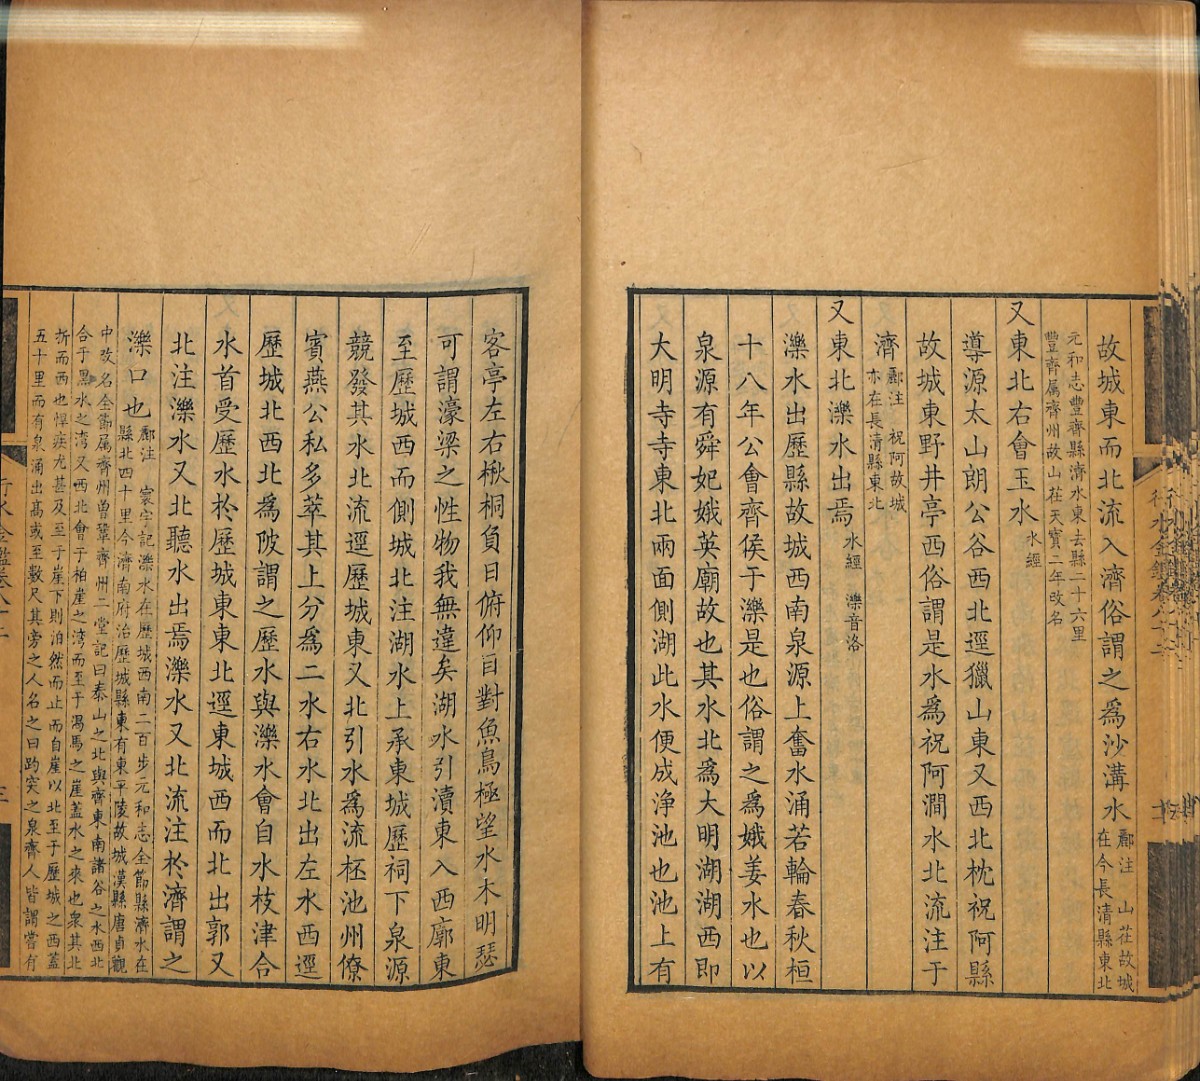 故城東而北流入濟俗謂之為沙溝水酈注 山茌故城在今長清縣東北
元和志豐齊縣濟水東去縣二十六里
豐齊属齊州故山茌天寶二年改名
又東北右會玉水水經
導源太山朗公谷西北逕獵山東又西北枕祝阿縣
故城東野井亭西俗謂是水為祝阿澗水北流注于
濟酈注 祝阿故城亦在長清縣東北
又東北濼水出焉水經 濼音洛
濼水出歷縣故城西南泉源上奮水涌若輪春秋桓
十八年公會齊侯于濼是也俗謂之為娥姜水也以
泉源有舜妃娥英廟故也其水北為大明湖湖西即
大明寺寺東北兩面側湖此水便成浄池也池上有
客亭左右楸桐負日俯仰目對魚鳥極望水木明瑟
可謂濠梁之性物我無違矣湖水引瀆東入西廓東
至歷城西而側城北注湖水上承東城歷祠下泉源
競發其水北流逕歷城東又北引水為流桮池州僚
賓燕公私多萃其上分為二水右水北出左水西逕
歷城北西北為陂謂之歷水與濼水會自水枝津合
水首受歷水於歷城東東北逕東城西而北出郭又
北注濼水又北聽水出焉濼水又北流注於濟謂之
濼口也酈注 寰宇記濼水在歷城西南二百步元和志全節縣濟水在
縣北四十里今濟南府治歷城縣東有東平陵故城漢縣唐貞觀
中改名全節属齊州曾鞏齊州二堂記曰泰山之北與齊東南諸谷之水西北
合于黑水之湾又西北會于柏崖之湾而至于渴馬之崖蓋水之来也衆其北
折而西也悍疾尤甚及至于崖下則泊然而止而自崖以北至于歷城之西蓋
五十里而有泉涌出髙或至數尺其旁之人名之曰趵突之泉齊人皆謂嘗有
行水金鑑卷八十二
三